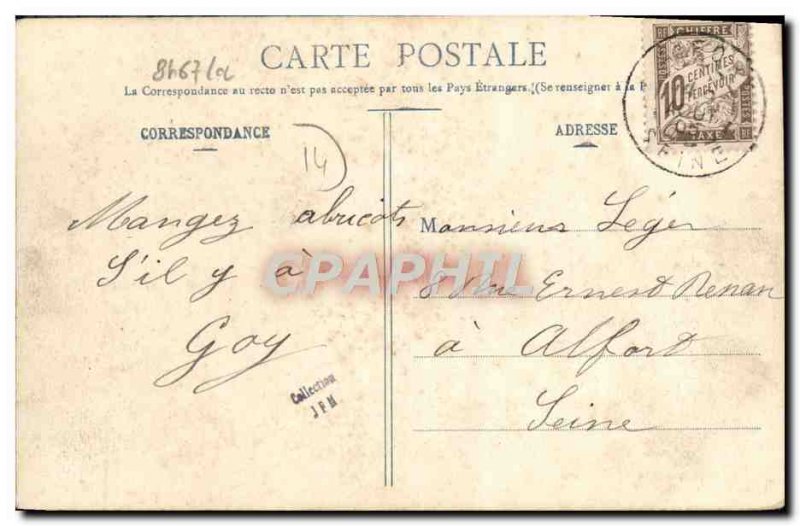 8467/a
CARTE POSTALE
La Correspondance au recto n'est pas acceptée par tous les Pays Étrangers. (Se renseigner à la P
CORRESPONDANCE
ADRESSE
14
Mangez abricots
S'il y à
Goy
Collection
JPM
Monsieur Legér
8 Rue Ernest Renan
à Alfort
Seine
CPAPHIL
CHIFFRE
10 CENTIMES
A PERCEVOIR
TAXE
POSTES
RF
SEINE